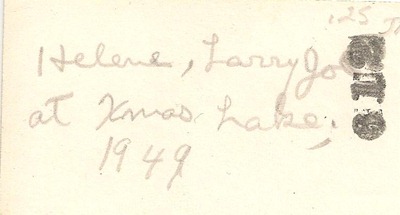 .25
Helene, Larry Joe
at Xmas Lake,
1949